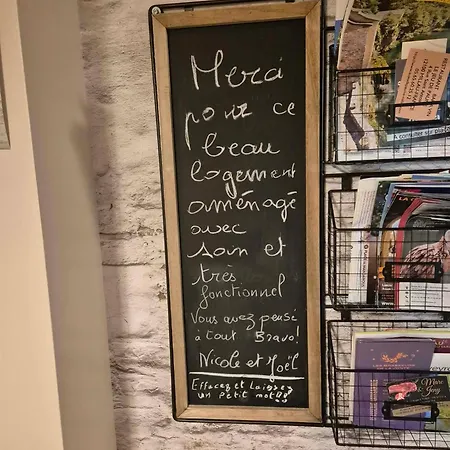 Merci
pour ce
beau
logement
aménagé
avec
soin et
très
fonctionnel
Vous avez pensé
à tout Bravo!
Nicole et Joël
Effacez et laissez
un petit mot!!!
RESTAURANT